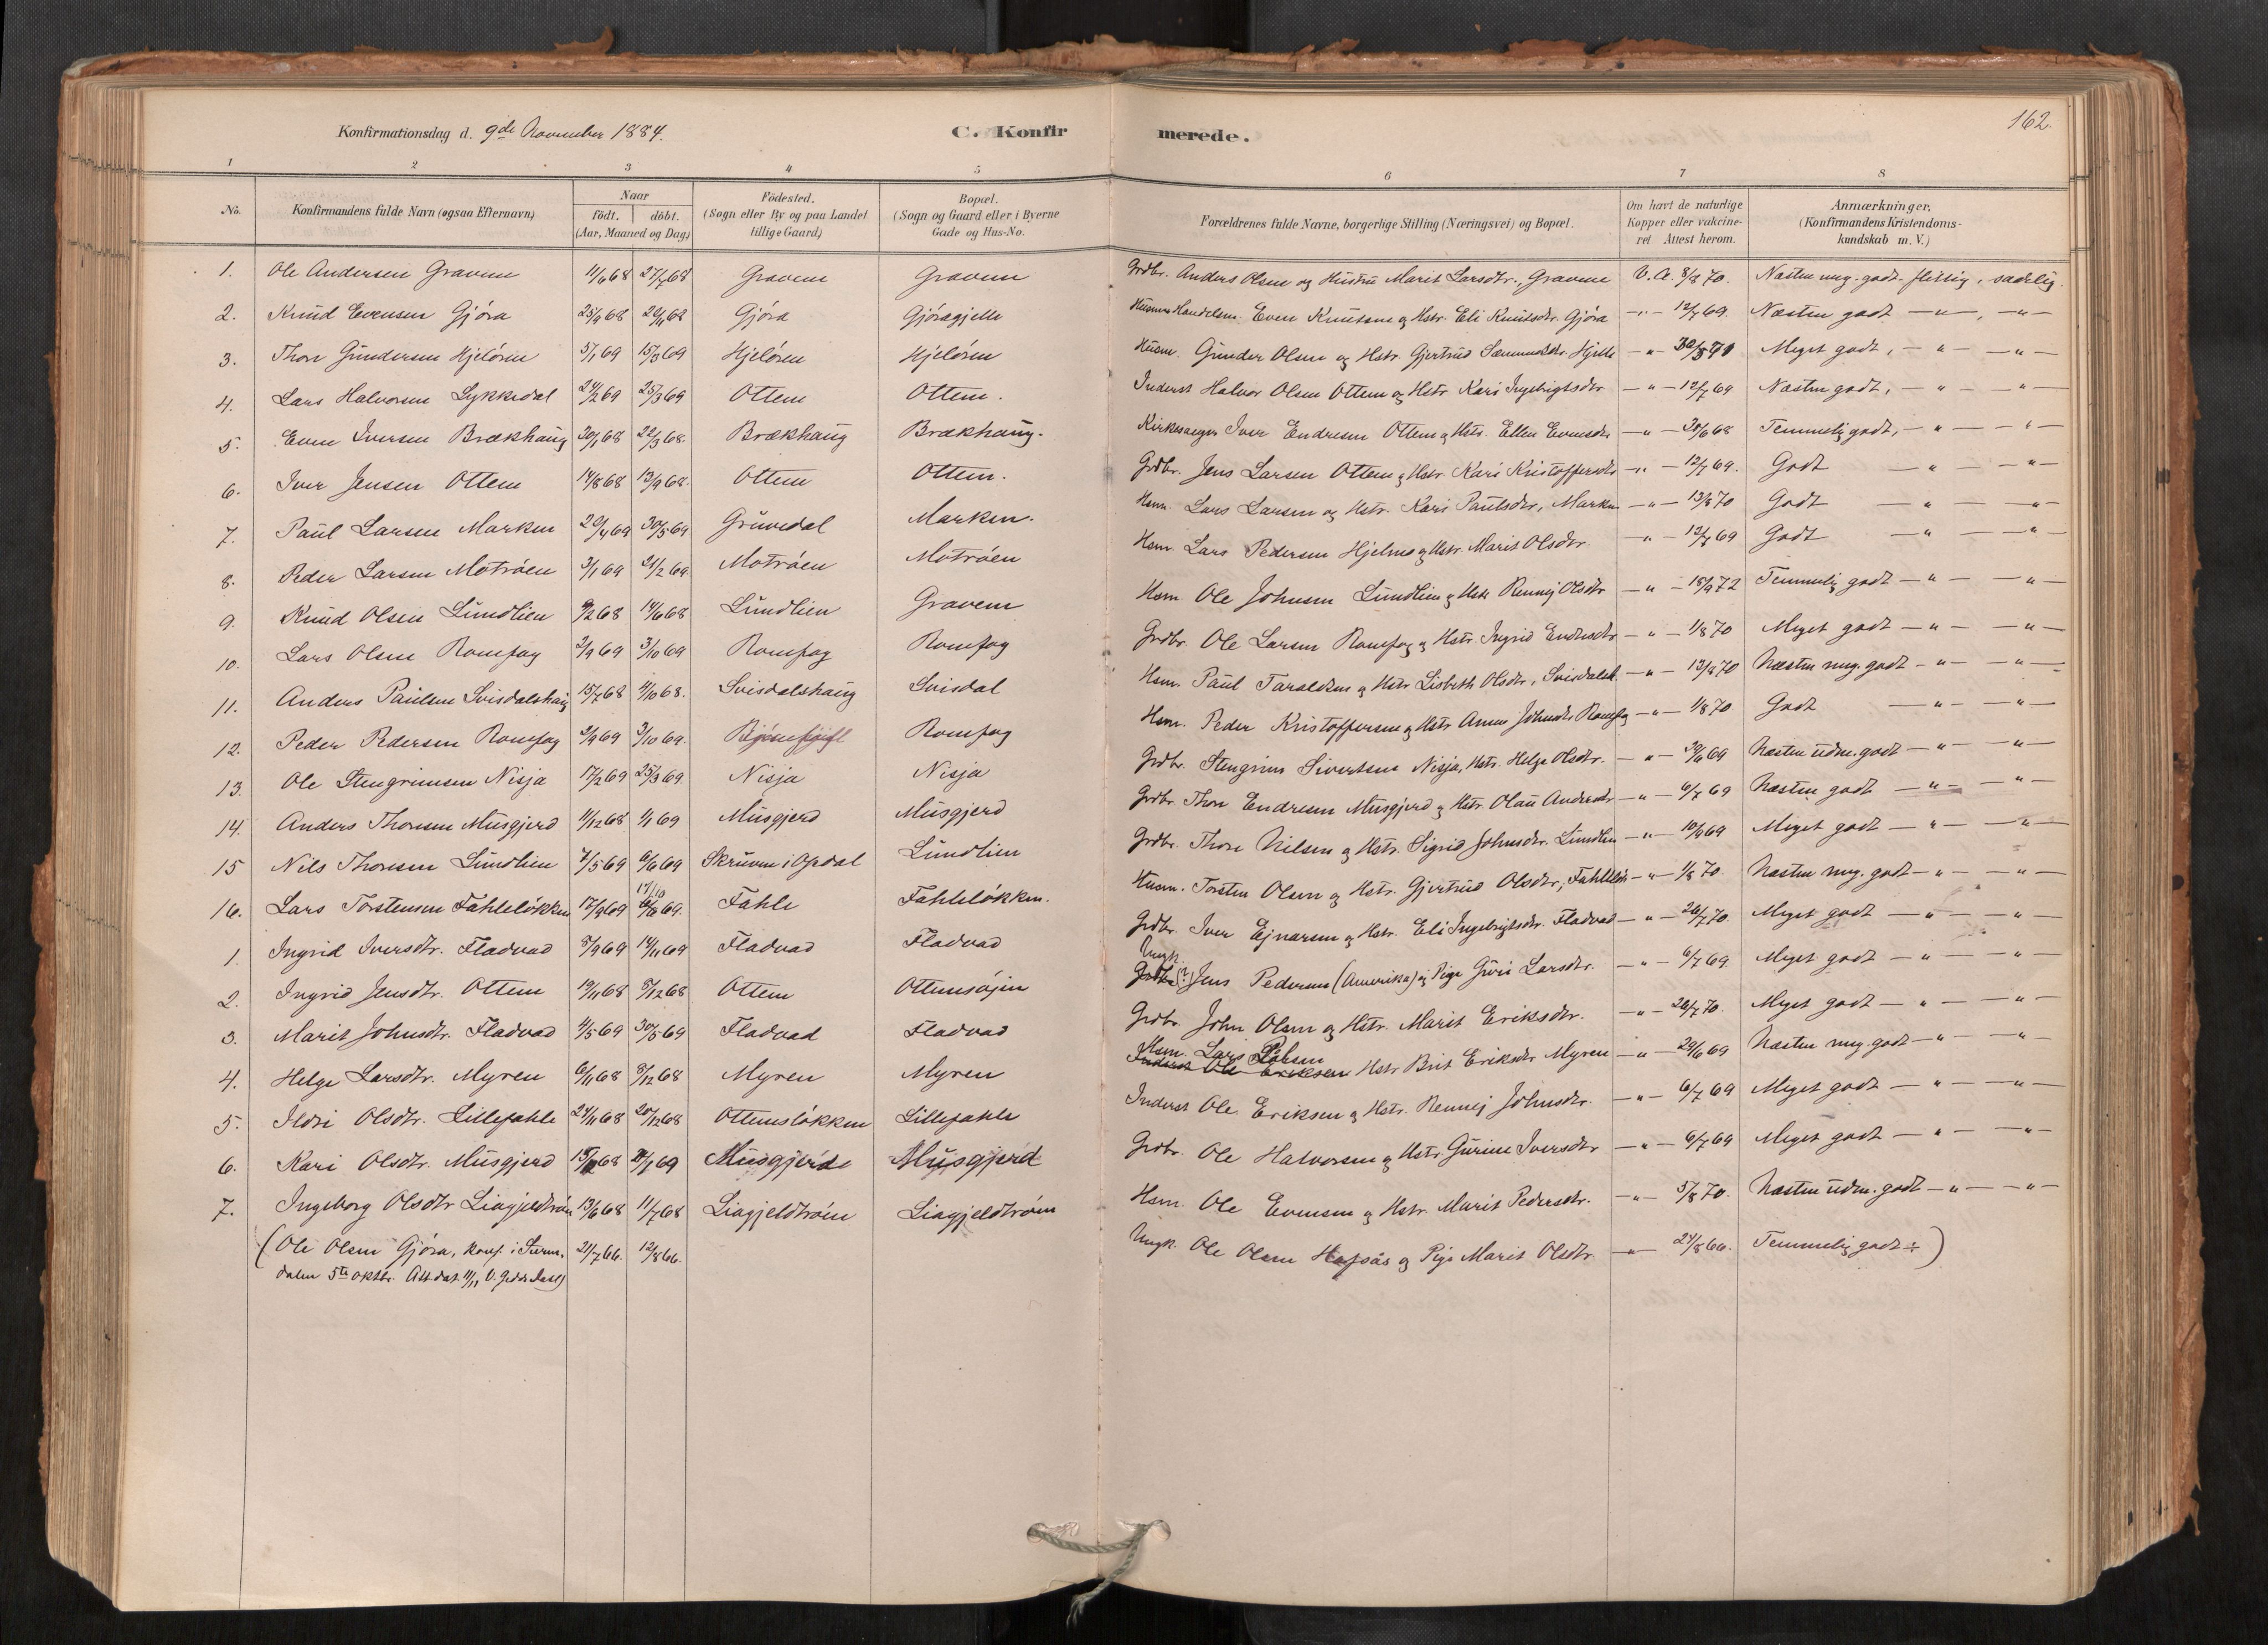 Konfirmationsdag d. 9de November 1884.
C. Konfir merede.
162.
1 2 3 4 5 6 7 8
No. Konfirmandens fulde Navn (ogsaa Efternavn) Naar født. døbt. (Aar, Maaned og Dag) Fødested. (Sogn eller By og paa Landet tillige Gaard) Bopæl. (Sogn og Gaard eller i Byerne Gade og Hus-No. Forældrenes fulde Navne, borgerlige Stilling (Næringsvei) og Bopæl. Om havt de naturlige Kopper eller vakcineret Attest herom. Anmærkninger, (Konfirmandens Kristendomskundskab m. V.)
1. Ole Andersen Gravem 11/6 68 27/7 68 Gravem Gravem Grdbr. Anders Olsen og Hustru Marit Larsdtr., Gravem V. A. 8/8 70. Næsten meg. godt. flittig, sædelig.
2. Knud Evensen Gjöra 25/9 68 20/11 68 Gjöra Gjöragjelle Husm. Handelsm. Even Knutsen og Hstr. Eli Knutsdtr. Gjöra -"- 12/7 69. Næsten godt -"-, -"-
3. Thore Gundersen Hjelören 5/1 69 15/3 69 Hjelören Hjelören Husm. Gunder Olsen og Hstr. Gjertrud Hjelle -"- Meget godt, -"- -"-
4. Lars Halvorsen Lykkedal 24/2 69 25/3 69 Ottem Ottem. Inderst Halvor Olsen Ottem og Hstr Kari Ingebrigtsdtr -"- 12/7 69 Næsten godt, -"- -"-
5. Even Iversen Brækhaug 30/1 68 22/3 68. Brækhaug Brækhaug. Kirkesanger Iver Endresen Ottem og Hstr. Ellen Evensdtr -"- 30/6 68 Temmelig godt, -"- -"-
6. Iver Jensen Ottem 14/8 68 13/9 68. Ottem Ottem. Grdbr. Jens Larsen Ottem og Hstr Kari Kristoffersdtr -"- 12/7 69. Godt -"- -"-
7. Paul Larsen Marken 20/4 69 30/5 69 Gruvedal Marken. Hsm. Lars Larsen og Hstr. Kari Paulsdtr, Marken -"- 13/8 70 Godt -"- -"-
8. Peder Larsen Motröen 3/1 69 21/2 69. Motröen Motröen Hsm. Lars Pedersen Hjelmo og Hstr. Marit Olsdtr. -"- 12/7 69 Godt -"- -"-
9. Knud Olsen Lundlien 9/2 68 14/6 68 Lundlien Gravem Hsm Ole Johnsen Lundlien og Hstr Rennej Olsdtr -"- 18/9 72 Temmelig godt -"- -"-
10. Lars Olsen Romfog 2/9 69 3/10 69 Romfog Romfog Grdbr. Ole Larsen Romfog og Hstr. Ingrid Endresdtr -"- 1/8 70 Meget godt -"- -"-
11. Anders Paulsen Svisdalshaug 15/7 68 4/10 68. Svisdalshaug Svisdal Hsm. Paul Taraldsen og Hstr Lisbeth Olsdtr, Svisdalsh. -"- 13/8 70 Næsten meg. godt -"- -"-
12. Peder Pedersen Romfog 2/9 69 3/10 69. Romfog Hsm. Peder Kristoffersen og Hstr Anne Johnsdtr Romfog -"- 1/8 70 Godt -"- -"-
13. Ole Stengrimsen Nisja 17/2 69 25/3 69. Nisja Nisja Grdbr. Stengrim Sivertsen Nisja, Hstr. Helge Olsdtr. -"- 30/6 69 Næsten udm. godt -"- -"-
14. Anders Thoresen Musgjerd 11/12 68 1/1 69 Musgjerd Musgjerd Grdbr. Thore Endresen Musgjerd og Hstr Olau Andersdtr -"- 6/7 69 Næsten godt -"- -"-
15 Nils Thoresen Lundlien 7/5 69 6/6 69 Skruven i Opdal Lundlien Grdbr. Thore Nilsen og Hstr. Sigrid Johnsdtr. Lundlien -"- 10/9 69 Meget godt -"- -"-
16. Lars Torstensen Fahlelökken 17/9 69 17/10 69. Fahle Fahlelökken. Husm. Torsten Olsen og Hstr. Gjertrud Olsdtr, Fahlelök -"- 1/8 70. Næsten meg. godt -"- -"-
1. Ingrid Iversdtr. Fladvad 8/9 69 14/11 69 Fladvad Fladvad Grdbr. Iver Ejnarsen og Hstr. Eli Ingebrigtsdtr. Fladvad -"- 26/7 70. Meget godt -"- -"-
2. Ingrid Jensdtr. Ottem 19/11 68 8/12 68 Ottem Ottemsöjen Ungk. Grdbr (?) Jens Pedersen (Amerika) og Pige Guri Larsdtr. -"- 6/7 69 Meget godt -"- -"-
3. Marit Johnsdtr. Fladvad 4/5 69 30/5 69 Fladvad Fladvad Grdbr. John Olsen og Hstr. Marit Eriksdtr. -"- 26/7 70. Meget godt -"- -"-
4. Helge Larsdtr. Myren 6/11 68 8/12 68 Myren Myren Hsm. Lars Inderst Ole Eriksen Hstr Brit Eriksdtr Myren -"- 29/6 69 Næsten meg. godt -"- -"-
5. Ildri Olsdtr. Lillefahle 24/11 68 20/12 68 Ottemslökken Lillefahle Inderst Ole Eriksen og Hstr. Rennej Johnsdtr. -"- 6/7 69 Meget godt -"- -"-
6. Kari Olsdtr. Musgjerd Musgjerde Musgjerd Grdbr. Ole Halvorsen og Hstr. Gurine Iversdtr -"- 6/7 69 Meget godt -"- -"-
7. Ingeborg Olsdtr Liagjeldtröen 13/6 68 11/7 68 Liagjeldtröen Liagjeldtröen Hsm. Ole Evensen og Hstr. Marit Pedersdtr. -"- 5/8 70. Næsten udm. godt -"- -"-
(Ole Olsen Gjöra, konf. i Surendalen 5te oktbr. Att. dat. 11/11 21/7 66. 12/8 66. Ungk. Ole Olsen Hafsås og Pige Marit Olsdtr. -"- 24/8 66. Temmelig godt ÷)